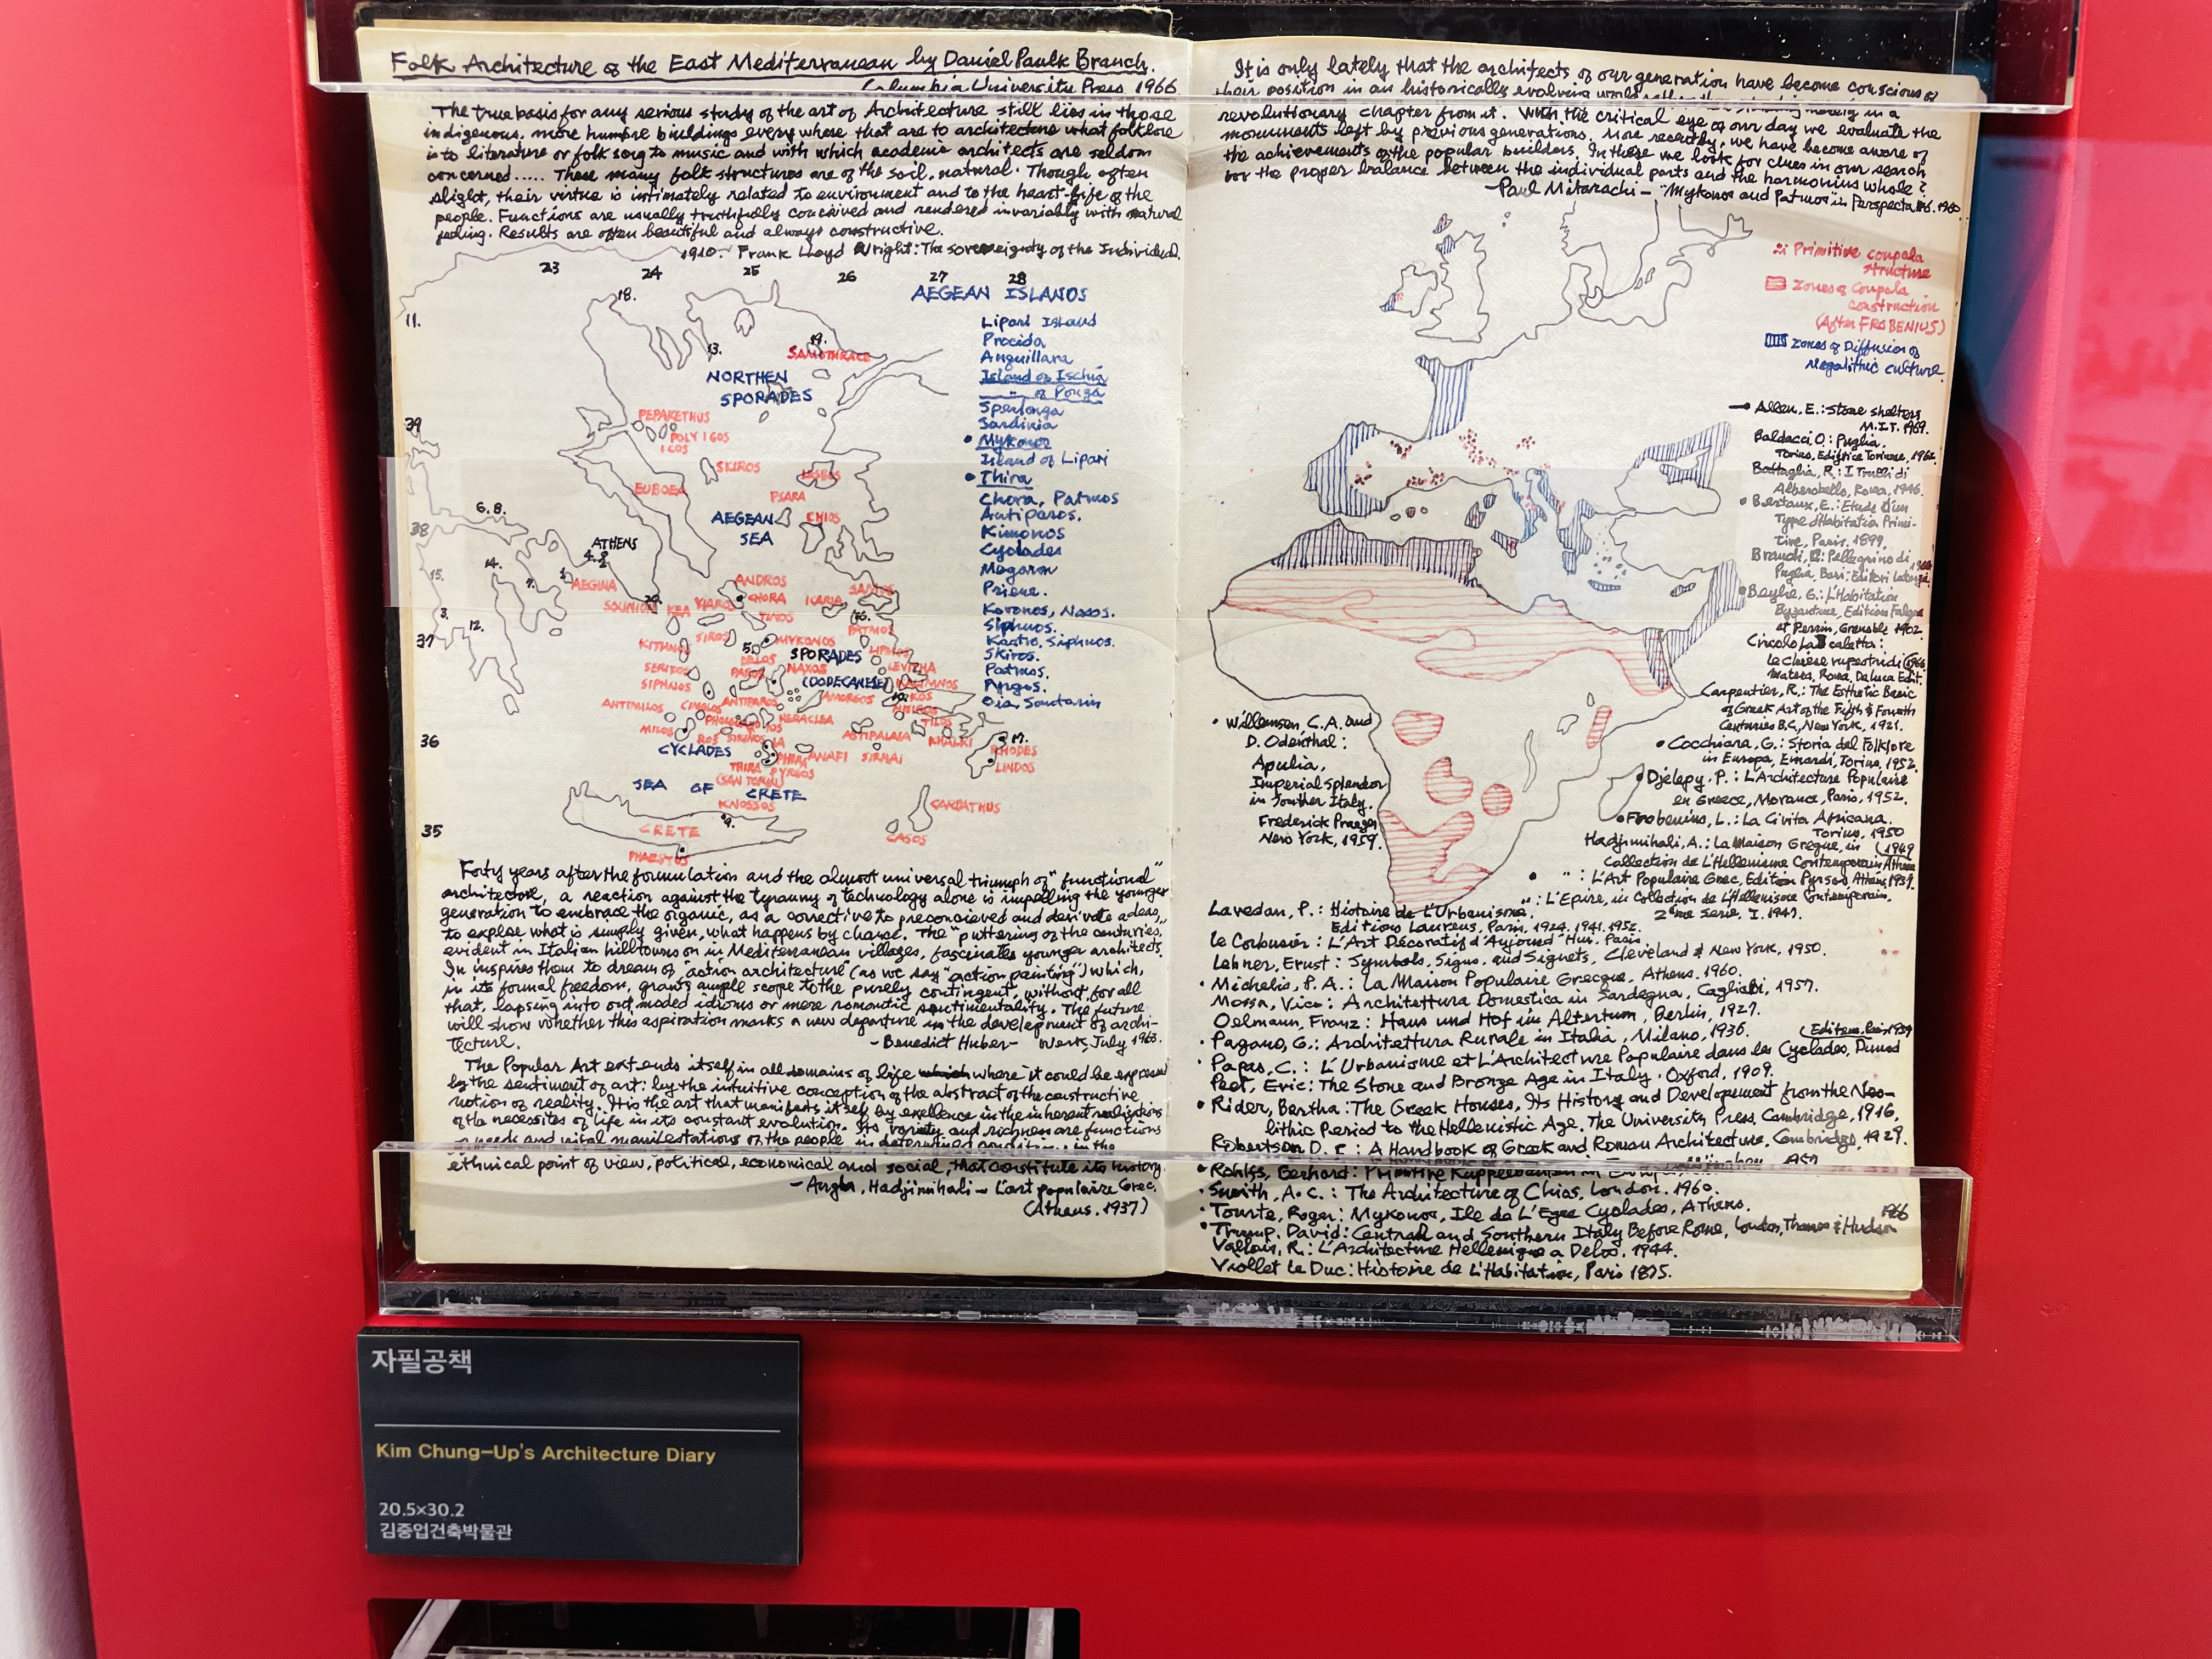 Folk Architecture of the East Mediterranean by Daniel Paulk Branch.
Columbia University Press 1966
The true basis for any serious study of the art of Architecture still lies in those
indigenous, more humble buildings every where that are to architecture what folklore
is to literature or folk song to music and with which academic architects are seldom
concerned..... These many folk structures are of the soil, natural. Though often
slight, their virtue is intimately related to environment and to the heart-life of the
people. Functions are usually truthfully conceived and rendered invariably with natural
feeling. Results are often beautiful and always constructive.
1910. Frank Lloyd Wright: The sovereignty of the Individual.
23 24 25 26 27 28
AEGEAN ISLANDS
Lipari Island
Procida
Anguillara
Island of Ischia
" of Ponza
Sperlonga
Sardinia
• Mykonos
Island of Lipari
• Thira
Chora, Patmos
Antiparos.
Kimonos
Cyclades
Megaron
Priene.
Koronos, Naxos.
Siphnos.
Kastro, Siphnos.
Skiros.
Patmos.
Pyrgos.
Oia, Santorin
11.
18.
13.
19.
SAMOTHRACE
NORTHEN
SPORADES
39
PEPARETHUS
POLY IGOS
ICOS
SKIROS
LESBOS
EUBOEA
PSARA
6.8.
AEGEAN
SEA
CHIOS
38
ATHENS
14.
15.
AEGINA
ANDROS
CHORA
ICARIA
SAMOS
SOUNION
KEA
TINOS
3.
12.
PATMOS
37
KITHNOS
SIROS
5.
MYKONOS
SPORADES
DELOS
SERIFOS
NAXOS
LEVITHA
SIPHNOS
(DODECANESE)
KALIMNOS
ANTIPAROS
AMORGOS
KOS
ANTIMILOS
CIMOLOS
HERACLEA
TILOS
MILOS
SIKINOS
ASTIPALAIA
KHALKI
17.
36
CYCLADES
ANAFI
SIRNAI
RHODES
THIRA
PYRGOS
LINDOS
(SAN TORIN)
SEA OF CRETE
KNOSSOS
CARPATHUS
9.
35
CRETE
CASOS
PHAESTUS
Forty years after the formulation and the almost universal triumph of "functional"
architecture, a reaction against the tyranny of technology alone is impelling the younger
generation to embrace the organic, as a corrective to preconcieved and derivate adeas,
to explse what is simply given, what happens by chance. The "puttering of the centuries,"
evident in Italian hilltowns on in Mediterranean villages, fascinates younger architects.
In inspires them to dream of "action architecture" (as we say "action painting") which,
in its formal freedom, grants ample scope to the purely contingent, without, for all
that, lapsing into out moded idioms or mere romantic sentimentality. The future
will show whether this aspiration marks a new departure in the development of archi-
tecture.
- Benedict Huber - Werk, July 1963.
The Popular Art extends itself in all domains of life where it could be expressed
by the sentiment of art: by the intuitive conception of the abstract of the constructive
notion of reality. It is the art that manifests itself by exellence in the inherent realizations
of the necessites of life in its constant evolution. Its variety and richness are functions
of needs and vital manifestations of the people in determined conditions: in the
ethnical point of view, political, economical and social, that constitute its history.
- Angla, Hadjimihali - L'art populaire Grec.
(Athens. 1937)
It is only lately that the architects of our generation have become conscious of
their position in an historically evolving world
revolutionary chapter from it. With the critical eye of our day we evaluate the
monuments left by previous generations, More recently, we have become aware of
the achievements of the popular builders. In these we look for clues in our search
for the proper balance between the individual parts and the harmonius whole?
- Paul Mitarachi - "Mykonos and Patmos" in Perspecta No6. 1960
Primitive coupala
structure
Zones of Coupala
construction
(After FROBENIUS)
Zones of Diffusion of
Megalithic culture.
Allen, E.: Stone shelters
M.I.T. 1969.
Baldacci O.: Puglia.
Torino, Editrice Torinese,
Battaglia, R.: I Trulli di
Alberobello, Roma, 1946.
• Bertaux, E.: Etude d'un
Type d'Habitation Primi-
tive, Paris. 1899,
Pellegrino di
Puglia, Bari: Editori Laterza.
• Beylié, G.: L'Habitation
Byzantine, Edition Falque
et Perrin, Grenoble 1902.
Circolo La Scaletta:
Le chiese rupestri di (1966
Matera, Roma, De Luca Edit.
Carpentier, R.: The Esthetic Basic
of Greek Art of the Fifth & Fourth
Centuries B.C, New York, 1921.
• Cocchiara, G.: Storia del Folklore
in Europa, Einardi, Torino, 1952.
Djelepy, P.: L'Architecture Populaire
en Grece, Morance, Paris, 1952.
• Frobenius, L.: La Civita Africana.
Torino, 1950
Hadjimihali, A.: La Maison Grèque, in (1949
Collection de L'Hellenisme Contemporain, Athens
• " : L'Art Populaire Grec, Edition Pyrsos Athens, 1937.
" : L'Epire, in Collection de L'Hellenisme Contemporain.
2eme Serie, I. 1947.
• Willemsen C.A. and
D. Odenthal:
Apulia,
Imperial Splendor
in Souther Italy.
Frederick Praeger
New York, 1959.
Lavedan, P.: Histoire de L'Urbanisme.
Editions Laurens, Paris, 1924, 1941, 1952.
le Corbusier: L'Art Décoratif d'Aujourd'Hui, Paris.
Lehner, Ernst: Symbols, Signs, and Signets, Cleveland & New York, 1950.
• Michelis, P. A.: La Maison Populaire Grecque, Athens. 1960.
Mossa, Vico: Architettura Domestica in Sardegna, Cagliari, 1957.
Oelmann, Franz: Haus und Hof im Altertum, Berlin, 1927.
• Pagano, G.: Architettura Rurale in Italia, Milano, 1936.
• Papas, C.: L'Urbanisme et L'Architecture Populaire dans les Cyclades, Dunod
Peet, Eric: The Stone and Bronze Age in Italy. Oxford, 1909.
• Rider, Bertha: The Greek Houses, Its History and Development from the Neo-
lithic Period to the Hellenistic Age. The University Press, Cambridge, 1916.
Robertson D. S.: A Handbook of Greek and Roman Architecture. Cambridge, 1929.
• Rohlfs, Gerhard: Primitive Kuppelbauten in
• Smith, A.C.: The Architecture of Chios, London. 1960.
• Tourte, Roger: Mykonos, Ile de L'Egee Cyclades, Athens.
• Trump, David: Central and Southern Italy Before Rome, London, Thames & Hudson 1966
Vallois, R.: L'Architecture Hellenique a Delos, 1944.
Viollet le Duc: Histoire de L'Habitation, Paris 1875.
자필공책
Kim Chung-Up's Architecture Diary
20.5×30.2
김중업건축박물관